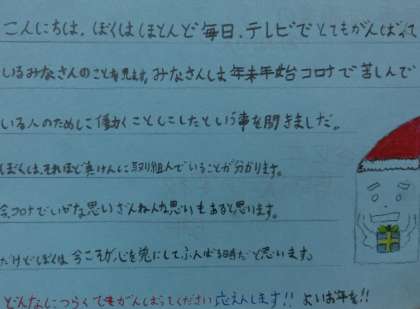 こんにちは、ぼくはほとんど毎日、テレビでとてもがんばって
いるみなさんのことを見ます。みなさんは年末年始コロナで苦しんで
いる人のために働くことにしたという事を聞きました。
ぼくは、それほど真けんに取り組んでいることが分かります。
今、コロナでいがな思いざんねんな思いもあると思います。
だけどぼくは今こそが、心を鬼にしてふんばる時だと思います。
どんなにつらくてもがんばってください応えんします!! よいお年を!!